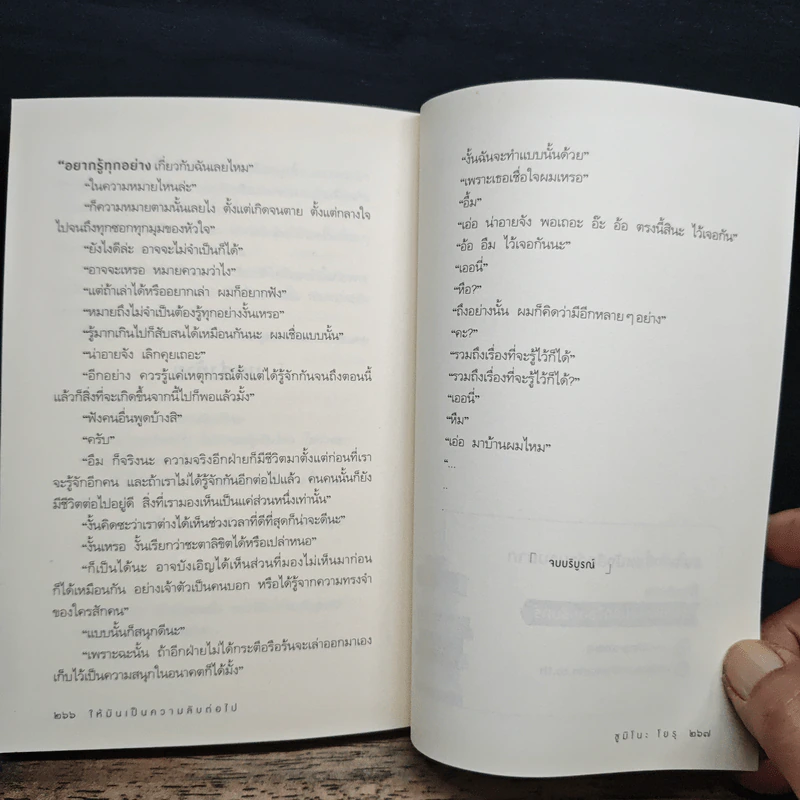 “อยากรู้ทุกอย่าง เกี่ยวกับฉันเลยไหม”
“ในความหมายไหนล่ะ”
“ก็ความหมายตามนั้นเลยไง ตั้งแต่เกิดจนตาย ตั้งแต่กลางใจ
ไปจนถึงทุกซอกทุกมุมของหัวใจ”
“ยังไงดีล่ะ อาจจะไม่จำเป็นก็ได้”
“อาจจะเหรอ หมายความว่าไง”
“แต่ถ้าเล่าได้หรืออยากเล่า ผมก็อยากฟัง”
“หมายถึงไม่จำเป็นต้องรู้ทุกอย่างงั้นเหรอ”
“รู้มากเกินไปก็สับสนได้เหมือนกันนะ ผมเชื่อแบบนั้น”
“น่าอายจัง เลิกคุยเถอะ”
“อีกอย่าง ควรรู้แค่เหตุการณ์ตั้งแต่ได้รู้จักกันจนถึงตอนนี้
แล้วก็สิ่งที่จะเกิดขึ้นจากนี้ไปก็พอแล้วมั้ง”
“ฟังคนอื่นพูดบ้างสิ”
“ครับ”
“อืม ก็จริงนะ ความจริงอีกฝ่ายก็มีชีวิตมาตั้งแต่ก่อนที่เรา
จะรู้จักอีกคน และถ้าเราไม่ได้รู้จักกันอีกต่อไปแล้ว คนคนนั้นก็ยัง
มีชีวิตต่อไปอยู่ดี สิ่งที่เรามองเห็นเป็นแค่ส่วนหนึ่งเท่านั้น”
“งั้นคิดซะว่าเราต่างได้เห็นช่วงเวลาที่ดีที่สุดก็น่าจะดีนะ”
“งั้นเหรอ งั้นเรียกว่าชะตาลิขิตได้หรือเปล่าหนอ”
“ก็เป็นได้นะ อาจบังเอิญได้เห็นส่วนที่มองไม่เห็นมาก่อน
ก็ได้เหมือนกัน อย่างเจ้าตัวเป็นคนบอก หรือได้รู้จากความทรงจำ
ของใครสักคน”
“แบบนั้นก็สนุกดีนะ”
“เพราะฉะนั้น ถ้าอีกฝ่ายไม่ได้กระตือรือร้นจะเล่าออกมาเอง
เก็บไว้เป็นความสนุกในอนาคตก็ได้มั้ง”
๒๖๖ ให้มันเป็นความลับต่อไป
“งั้นฉันจะทำแบบนั้นด้วย”
“เพราะเธอเชื่อใจผมเหรอ”
“อื้ม”
“เอ่อ น่าอายจัง พอเถอะ อ๊ะ อ้อ ตรงนี้สินะ ไว้เจอกัน”
“อ้อ อืม ไว้เจอกันนะ”
“เออนี่”
“หือ?”
“ถึงอย่างนั้น ผมก็คิดว่ามีอีกหลายๆอย่าง”
“คะ?”
“รวมถึงเรื่องที่จะรู้ไว้ก็ได้”
“รวมถึงเรื่องที่จะรู้ไว้ก็ได้?”
“เออนี่”
“หืม”
“เอ่อ มาบ้านผมไหม”
“...
..
จบบริบูรณ์
ซูมิโนะ โยรุ ๒๖๗